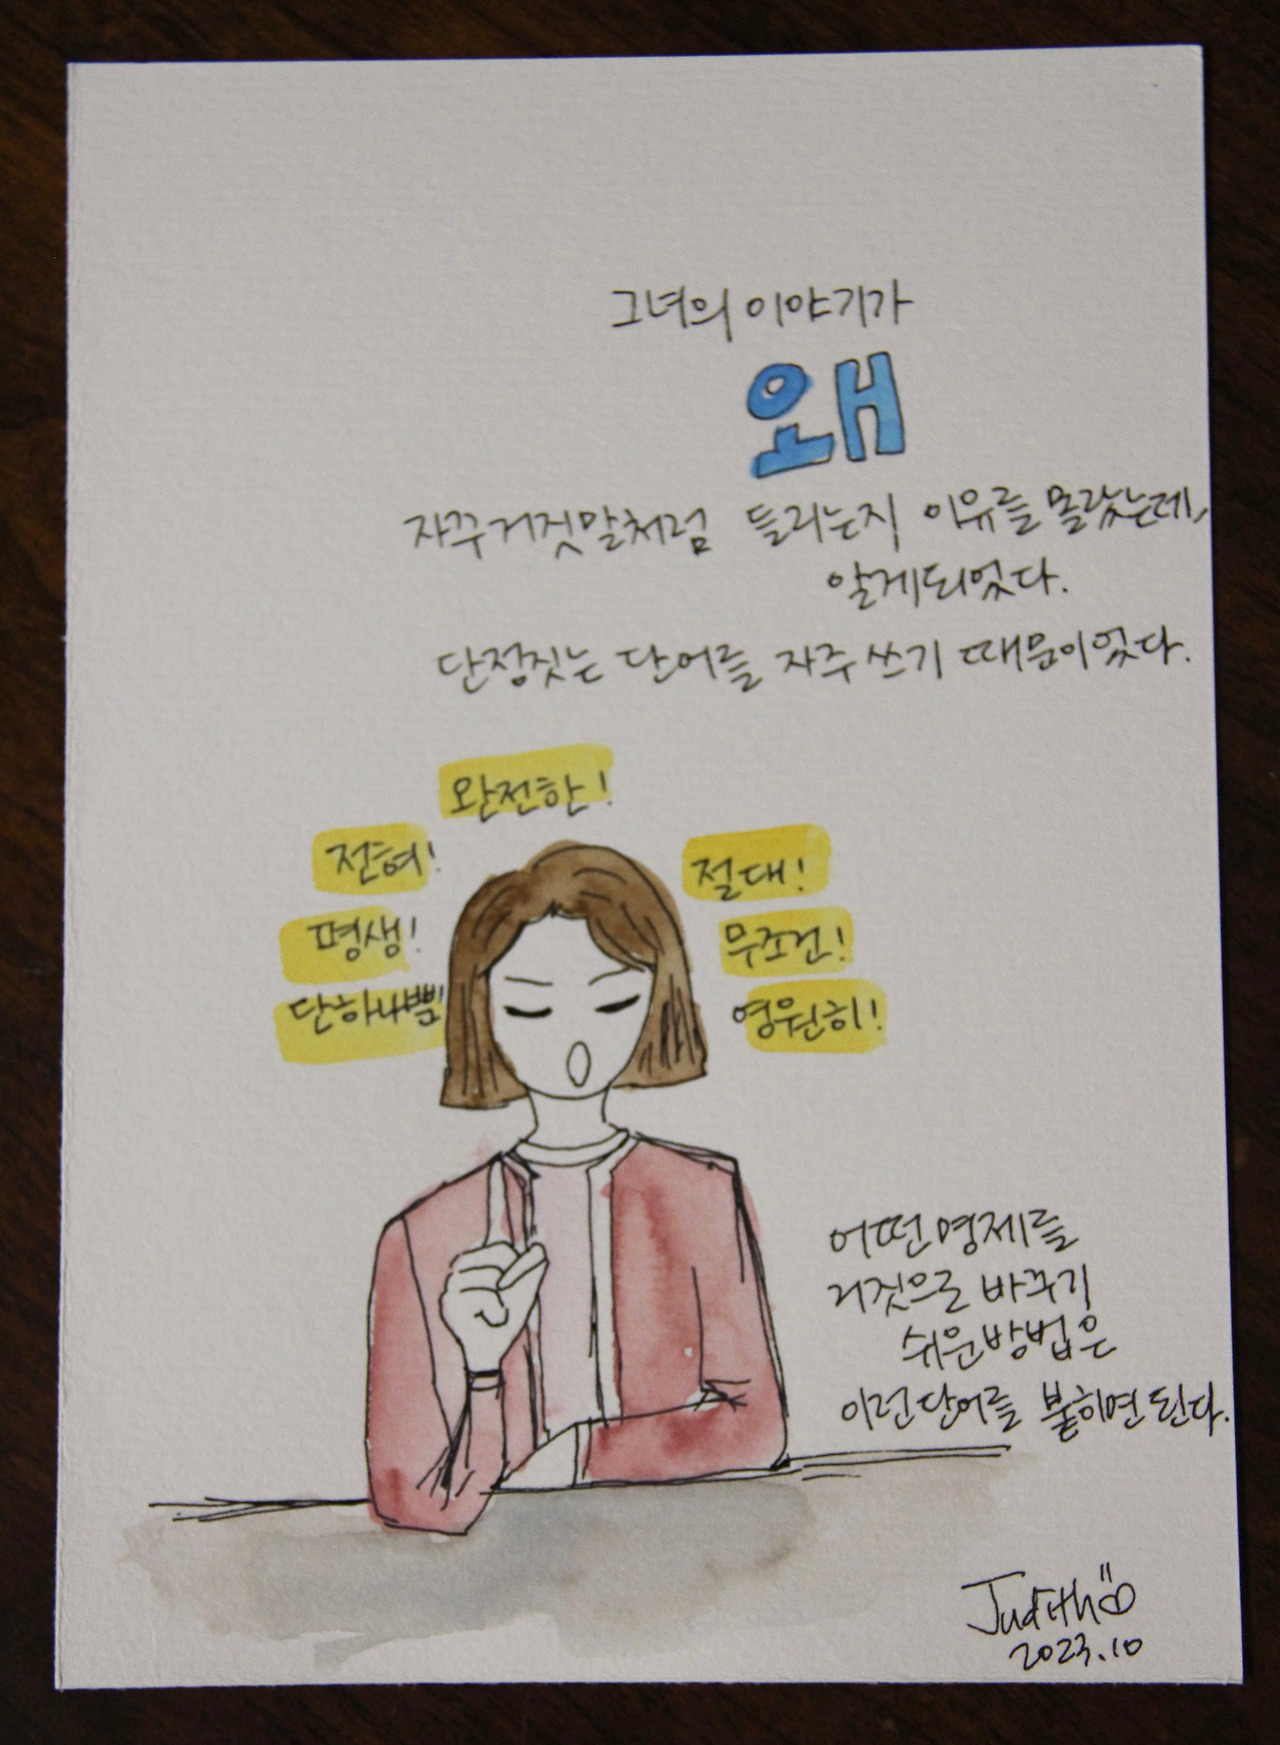 그녀의 이야기가
왜
자꾸 거짓말처럼 들리는지 이유를 몰랐는데,
알게되었다.
단정짓는 단어를 자주 쓰기 때문이었다.
완전한!
전혀!
절대!
평생!
무조건!
단하나뿐!
영원히!
어떤 명제를
거짓으로 바꾸기
쉬운방법은
이런단어를 붙히면 된다.
Judith
2023.10